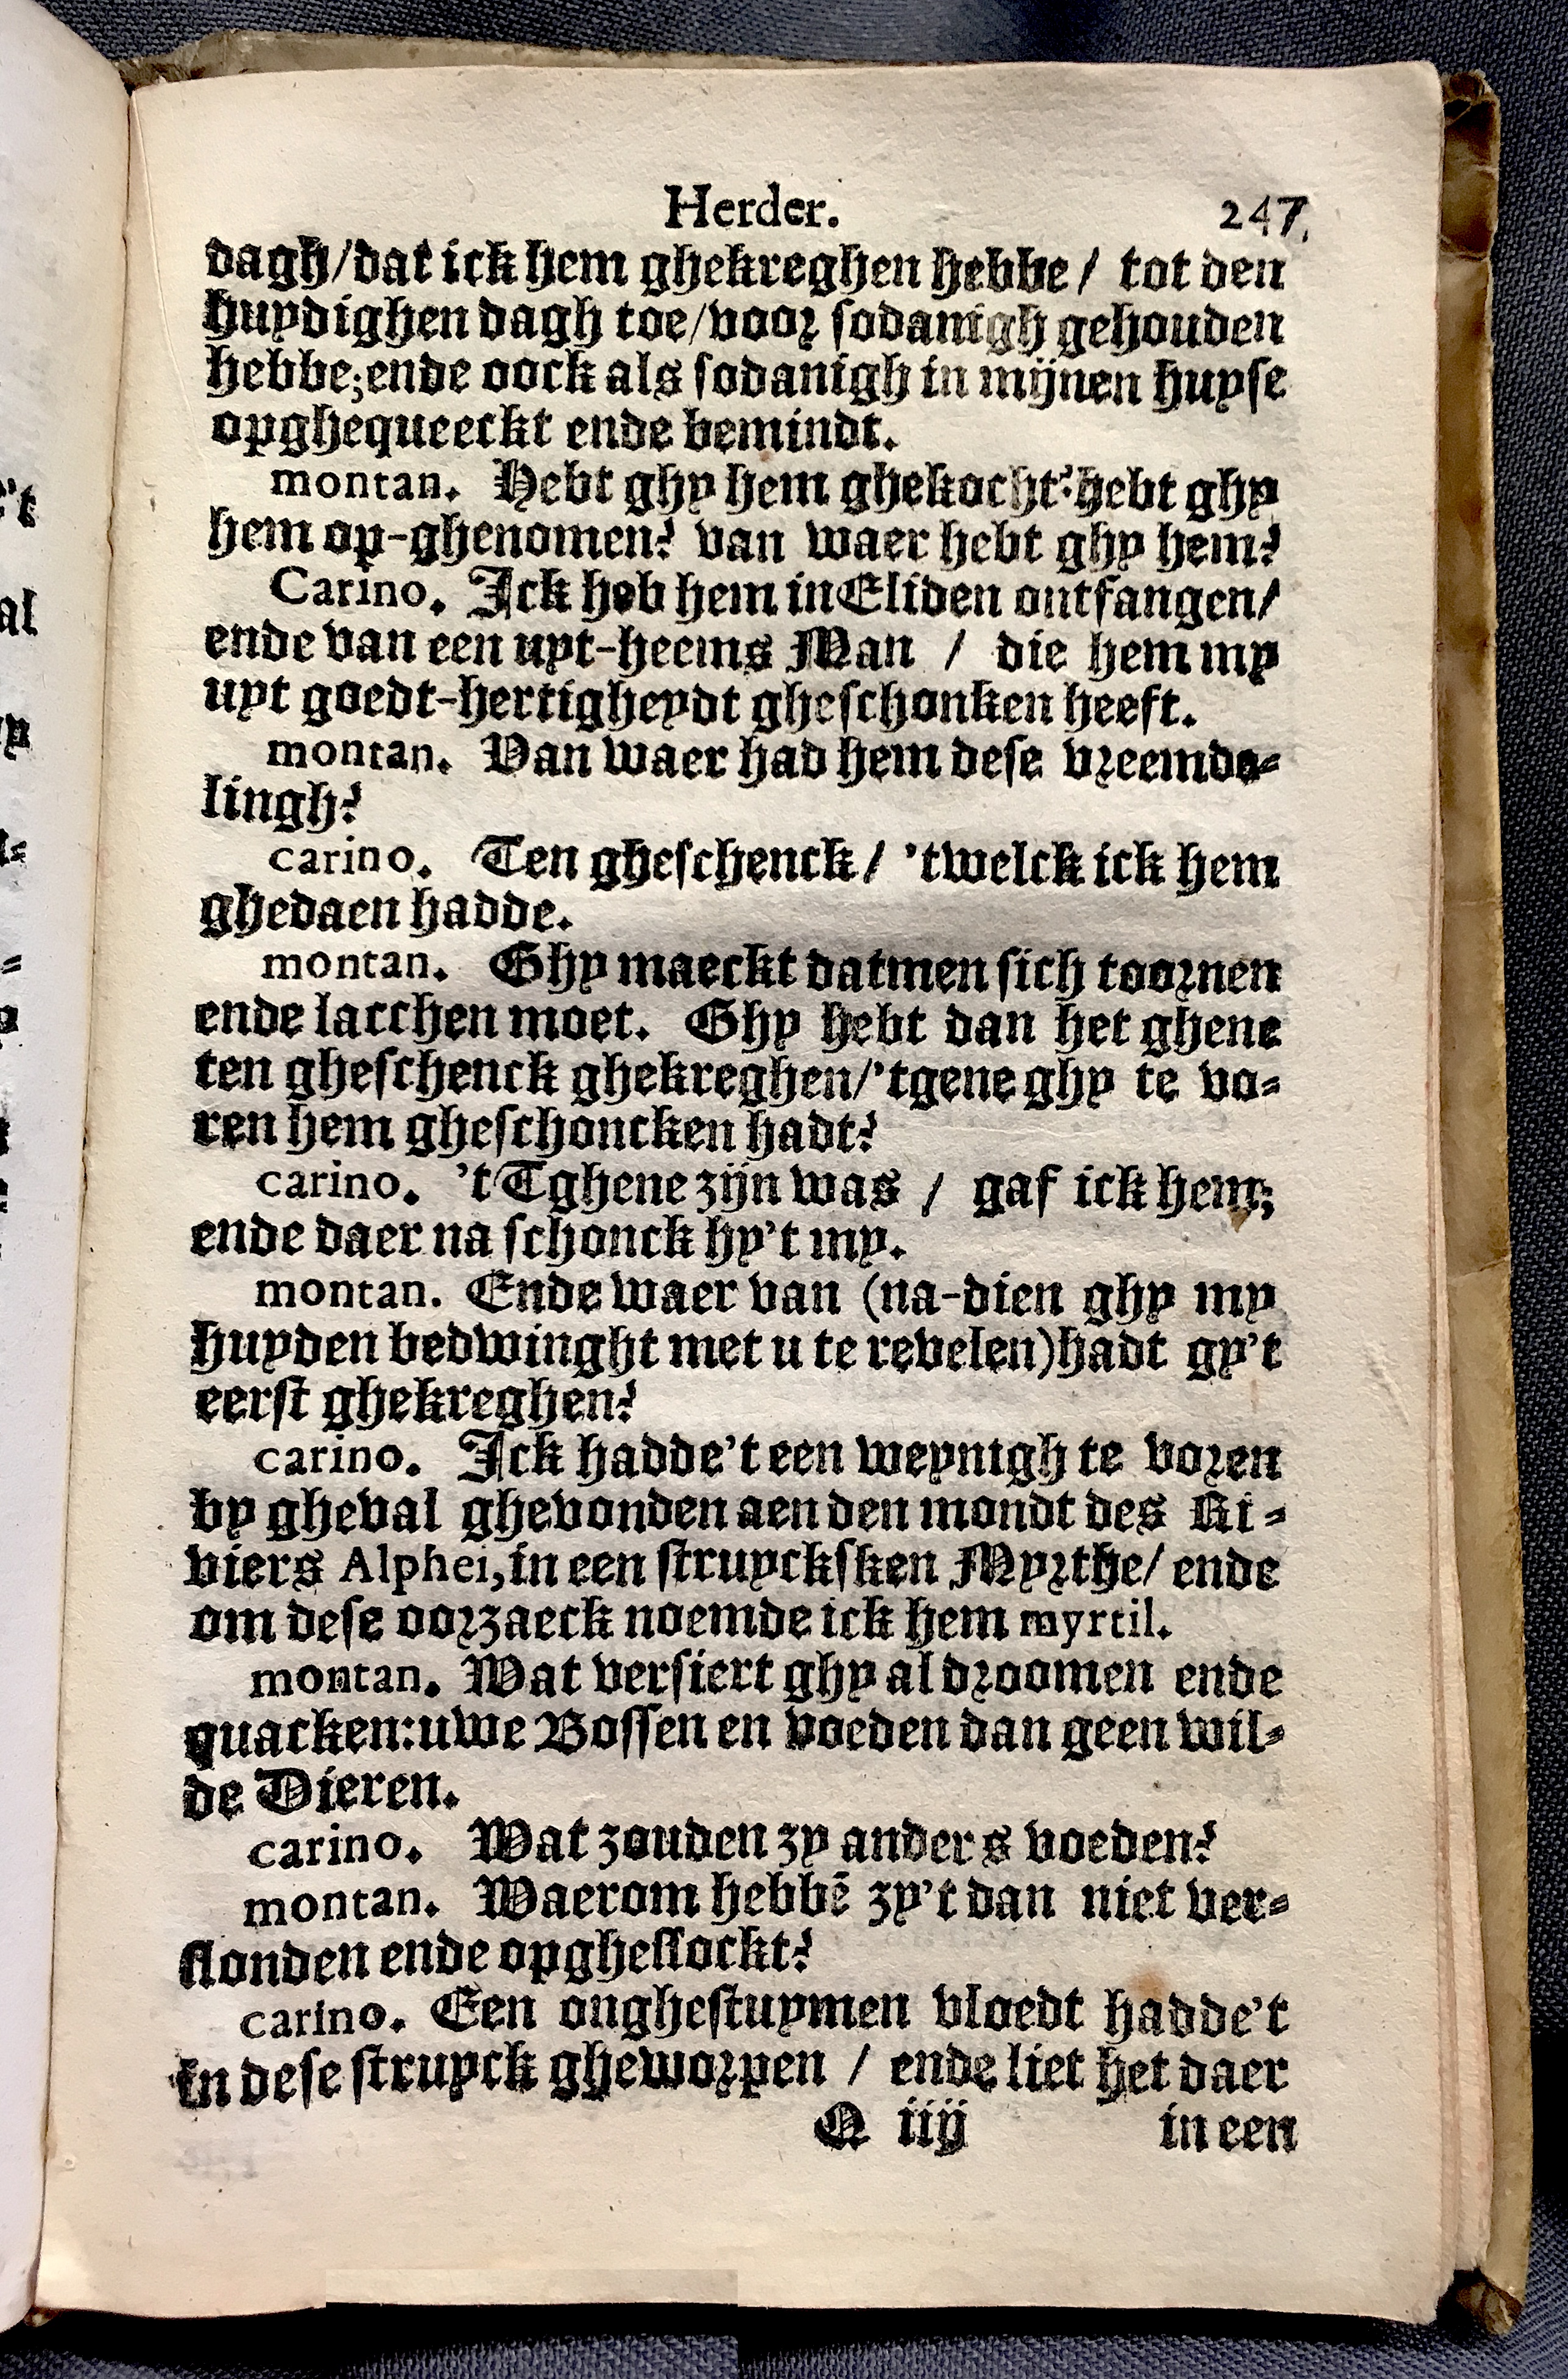 Herder. 247.
dagh/dat ick hem ghekreghen hebbe / tot den
huydighen dagh toe/voor sodanigh gehouden
hebbe;ende oock als sodanigh in mijnen huyse
opghequeeckt ende bemindt.
montan. Hebt ghy hem ghekocht?hebt ghy
hem op-ghenomen? van waer hebt ghy hem?
Carino. Ick heb hem in Eliden ontfangen/
ende van een uyt-heems Man / die hem my
uyt goedt-hertigheydt gheschonken heeft.
montan. Van waer had hem dese vreemde-
lingh?
carino. Ten gheschenck / 'twelck ick hem
ghedaen hadde.
montan. Ghy maeckt datmen sich toornen
ende lacchen moet. Ghy hebt dan het ghene
ten gheschenck ghekreghen/'tgene ghy te vo-
ren hem gheschoncken hadt?
carino. 't Tghene zijn was / gaf ick hem;
ende daer na schonck hy't my.
montan. Ende waer van (na-dien ghy my
huyden bedwinght met u te revelen)hadt gy't
eerst ghekreghen?
carino. Ick hadde't een weynigh te voren
by gheval ghevonden aen den mondt des Ri-
viers Alphei,in een struycksken Myrthe/ ende
om dese oorzaeck noemde ick hem myrtil.
montan. Wat versiert ghy al droomen ende
quacken:uwe Bossen en voeden dan geen wil-
de Dieren.
carino. Wat zouden zy anders voeden?
montan. Waerom hebbē zy't dan niet ver-
slonden ende opgheslockt?
carino. Een onghestuymen vloedt hadde't
in dese struyck gheworpen / ende liet het daer
Q iiij in een